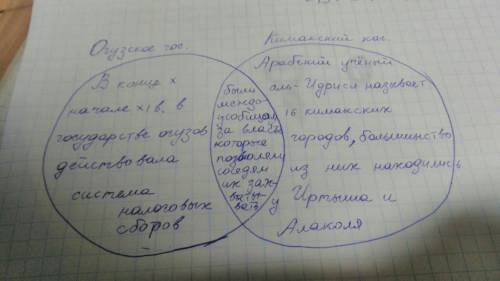 Огузское гос.
Кимакский каг.
В конце X
начале XI в. в
государстве огузов
действовала
система
налоговых
сборов
были
междо-
усобицы
за власть
которые
позволяли
соседям
их зах-
ваты-
вать
Арабский учёный
аль-Идриси называет
16 кимакских
городов, большинство
из них находились
у Иртыша и
Алаколя